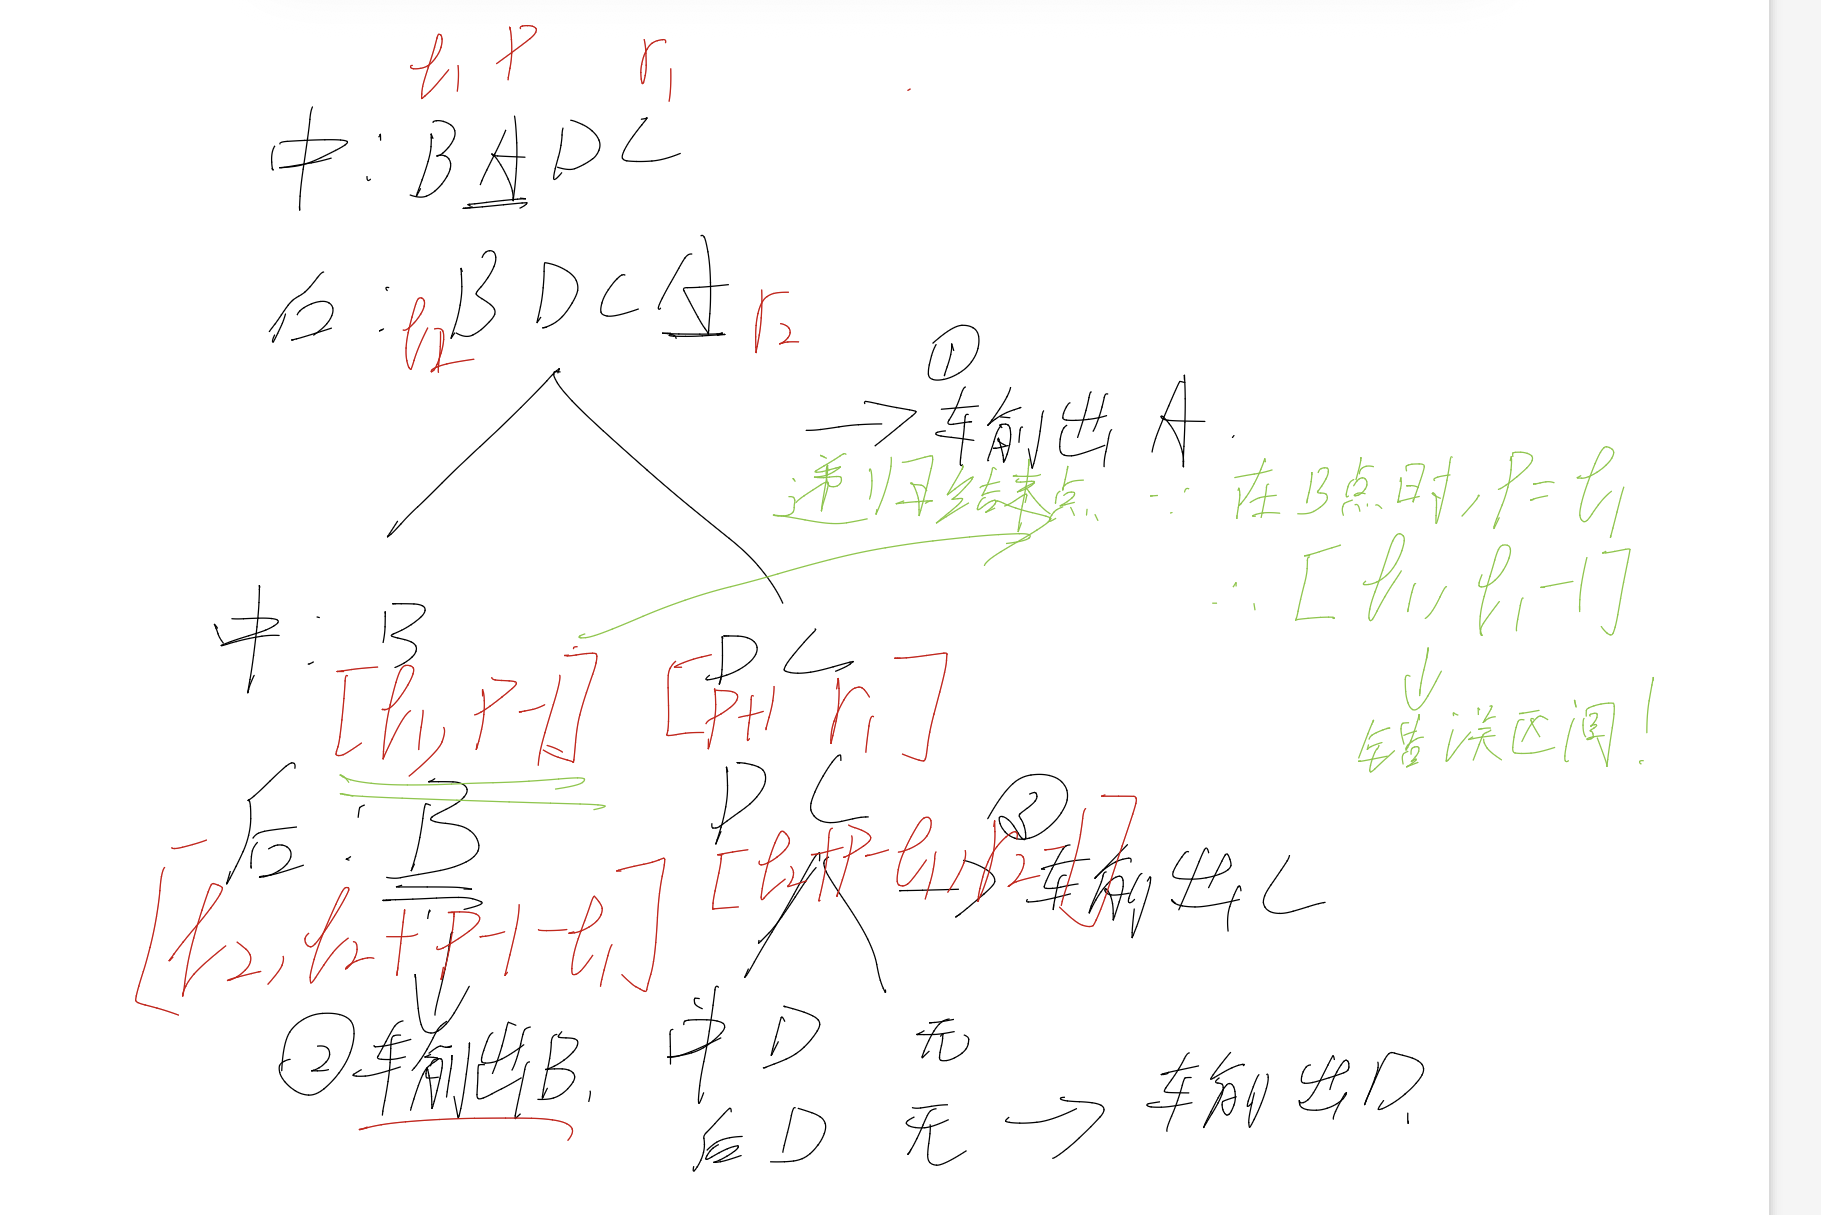 l₁ P r₁
中:BADC
后:l₂BDCA r₂
①
→输出A.
递归结束点 ∵在B点时,P=l₁
∴[l₁,l₁-1]
↓
错误区间!
中:B DC
[l₁,P-1] [P+1 r₁]
后:B DC
③
[l₂,l₂+P-1-l₁] [l₂+P-l₁,r₂-1]
→输出C
↓
②输出B. 中D 无
后D 无→输出D.